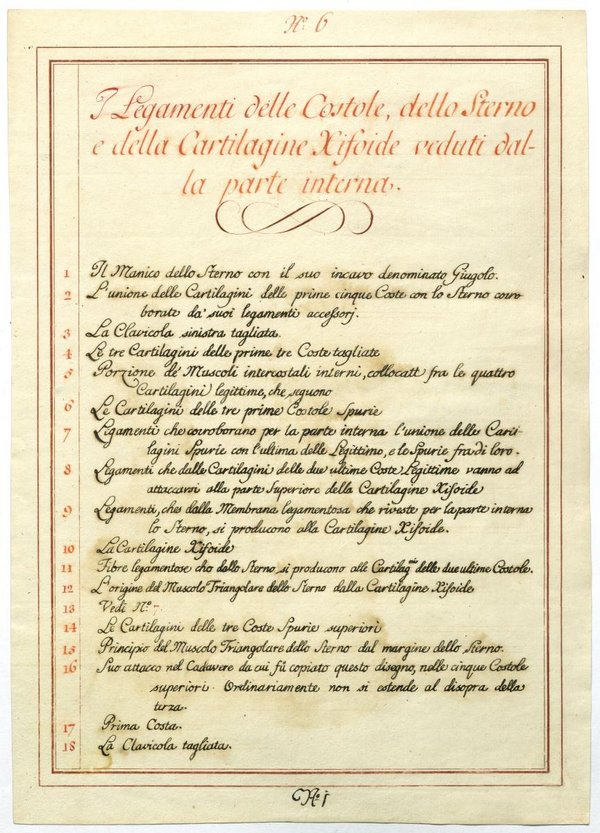 N.º 6
I Legamenti delle Costole, dello Sterno
e della Cartilagine Xifoide veduti dal-
la parte interna.
1 Il Manico dello Sterno con il suo incavo denominato Giugolo.
2 L'unione delle Cartilagini delle prime cinque Coste con lo Sterno corro
borate da' suoi legamenti accessorj.
3 La Clavicola sinistra tagliata.
4 Le tre Cartilagini delle prime tre Coste tagliate
5 Porzione de' Muscoli intercostali interni, collocati fra le quattro
Cartilagini legittime, che seguono
6 Le Cartilagini delle tre prime Costole Spurie
7 Legamenti che corroborano per la parte interna l'unione delle Carti-
lagini Spurie con l'ultima delle Legittime, e le Spurie fra di loro.
8 Legamenti che dalle Cartilagini delle due ultime Coste Legittime vanno ad
attaccarsi alla parte Superiore della Cartilagine Xifoide
9 Legamenti, che dalla Membrana legamentosa che riveste per la parte interna
lo Sterno, si producono alla Cartilagine Xifoide.
10 La Cartilagine Xifoide
11 Fibre legamentose che dallo Sterno, si producono alle Cartilag.ni delle due ultime Costole.
12 L'origine del Muscolo Triangolare dello Sterno dalla Cartilagine Xifoide
13 Vedi N.º 7
14 Le Cartilagini delle tre Coste Spurie superiori
15 Principio del Muscolo Triangolare dello Sterno dal margine dello Sterno.
16 Suo attacco nel Cadavere da cui fù copiato questo disegno, nelle cinque Costole
superiori. Ordinariamente non si estende al disopra della
terza.
17 Prima Costa.
18 La Clavicola tagliata.
N.º 1